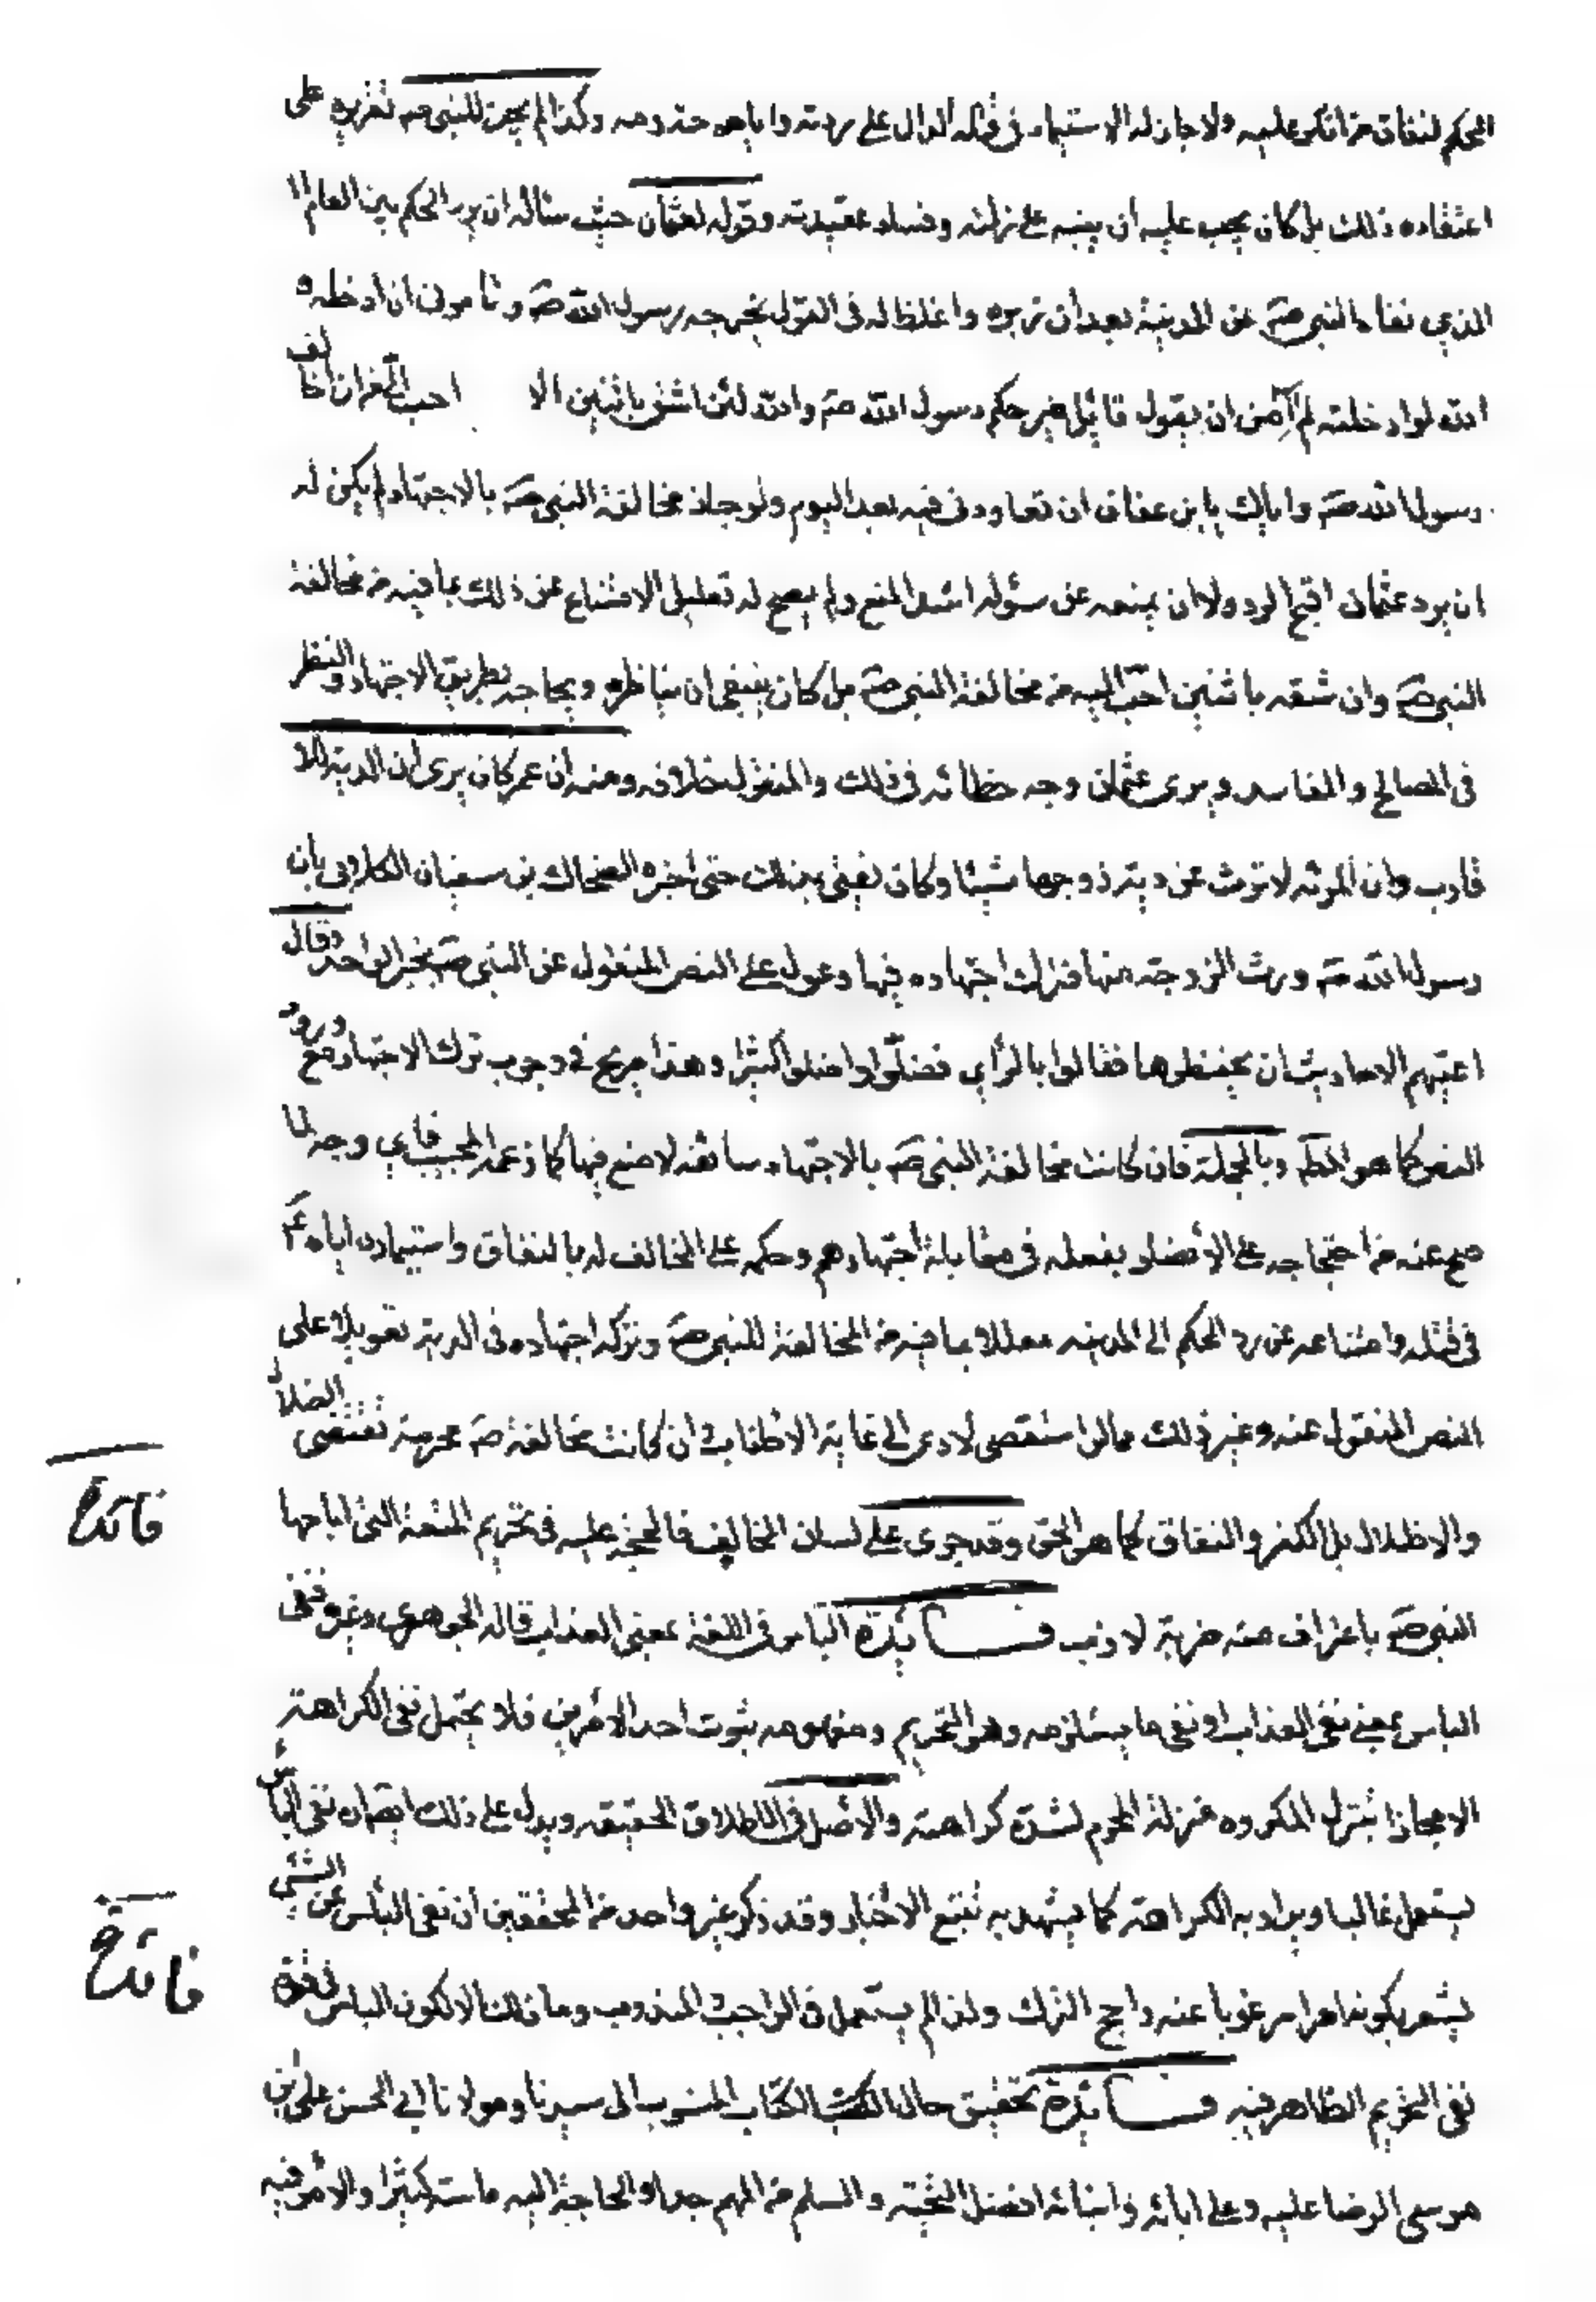 الحكم لنفاق من انكر عليه ولا جاز له الاستيمار في قتله الدال على ردته واباحة دمه وكذا لم يجز للنبي صم تقريره على
اعتقاده ذلك بل كان يجب عليه أن ينبه على زلته وفساد عقيدته وقوله لعثمان حيث سئاله ان يرد الحكم بين العاص
الذي نفاه النبي صم عن المدينة بعد أن زبره واغلظ له في القول يخرجه رسول الله صم وتامرني ان ادخله
الله لو ادخلته لم آمن ان يقول قائل غير حكم رسول الله صم والله لئن اشق باثنين الا احب الى من ان اخالف
رسول الله صم واياك يا بن عفان ان تعاودني فيه بعد اليوم ولو جاز مخالفة النبي صم بالاجتهاد لم يكن له
ان يرد عثمان اقبح الرد ولا ان يمنعه عن سؤله اشد المنع ولم يصح له تعليل الامتناع عن ذلك بما فيه من مخالفة
النبي صم وان شقه باثنين احب اليه من مخالفة النبي صم بل كان ينبغي ان يناظره ويحاجه بطريق الاجتهاد والنظر
في المصالح والمفاسد ويرى عثمان وجه خطائه في ذلك والمنقول خلافه ومنه ان عمر كان يرى ان الدية للا
قارب وان المرئة لا ترث عن دية زوجها شيئا وكان يفتي بذلك حتى اخبره الضحاك بن سفيان الكلابي بان
رسول الله صم ورث الزوجة منها فترك اجتهاده فيها وعول على النص المنقول عن النبي صم بخبر الواحد وقال
اعيتهم الاحاديث ان يحفظوها فقالوا بالرأي فضلوا واضلوا كثيرا وهذا صريح في وجوب ترك الاجتهاد مع ورود
النص كما هو الحكم وبالجملة فان كانت مخالفة النبي صم بالاجتهاد سائغة لا صنع فيها كما زعمه المجيب فاي وجه لما
صح عنه من احتجاجه على الأنصار بفعله في مقابلة اجتهادهم وحكمه على المخالف له بالنفاق واستيماره اياه ع
في قتله وامتناعه عن رد الحكم الى المدينه معللا بما فيه من المخالفة للنبي صم وتركه اجتهاده في الدية تعويلا على
النص المنقول عنه وغير ذلك مما لو استقصي لادى الى غاية الاطناب وان كانت مخالفة صم محرمة تقتضي الضلال
والاضلال بل الكفر والنفاق كما هو الحق وقد جرى على لسان المخالف فالحجة عليه في تحريم المتعة التي اباحها
النبي صم باعتراف منه ضربة لازب فائدة البأس في اللغة بمعنى العذاب قاله الجوهري وغيره فنفي
البأس بمعنى نفي العذاب او نفي ما يستلزمه وهو التحريم ومفهومه ثبوت احد الأمرين فلا يحتمل نفي الكراهة
الا مجازا بتنزل المكروه منزلة المحرم لشدة كراهته والأصل في الاطلاق الحقيقه ويدل على ذلك ايضا ان نفي البأس
يستعمل غالبا ويراد به الكراهة كما يشهد به تتبع الاخبار وقد ذكر غير واحد من المحققين ان نفي البأس عن الشئ
يشعر بكونه امرا مرغوبا عنه راجح الترك ولذا لم يستعمل في الواجب والمندوب وما ذلك الا لكون البأس
نفي التحريم الظاهر فيه فائدة تحقيق حال الكتاب المنسوب الى سيدنا ومولانا ابي الحسن علي بن
موسى الرضا عليه وعلى ابائه وابنائه افضل التحية والسلم من المهم جدا والحاجة اليه ماسة كثيرا والأمر فيه
فائدة
فائدة